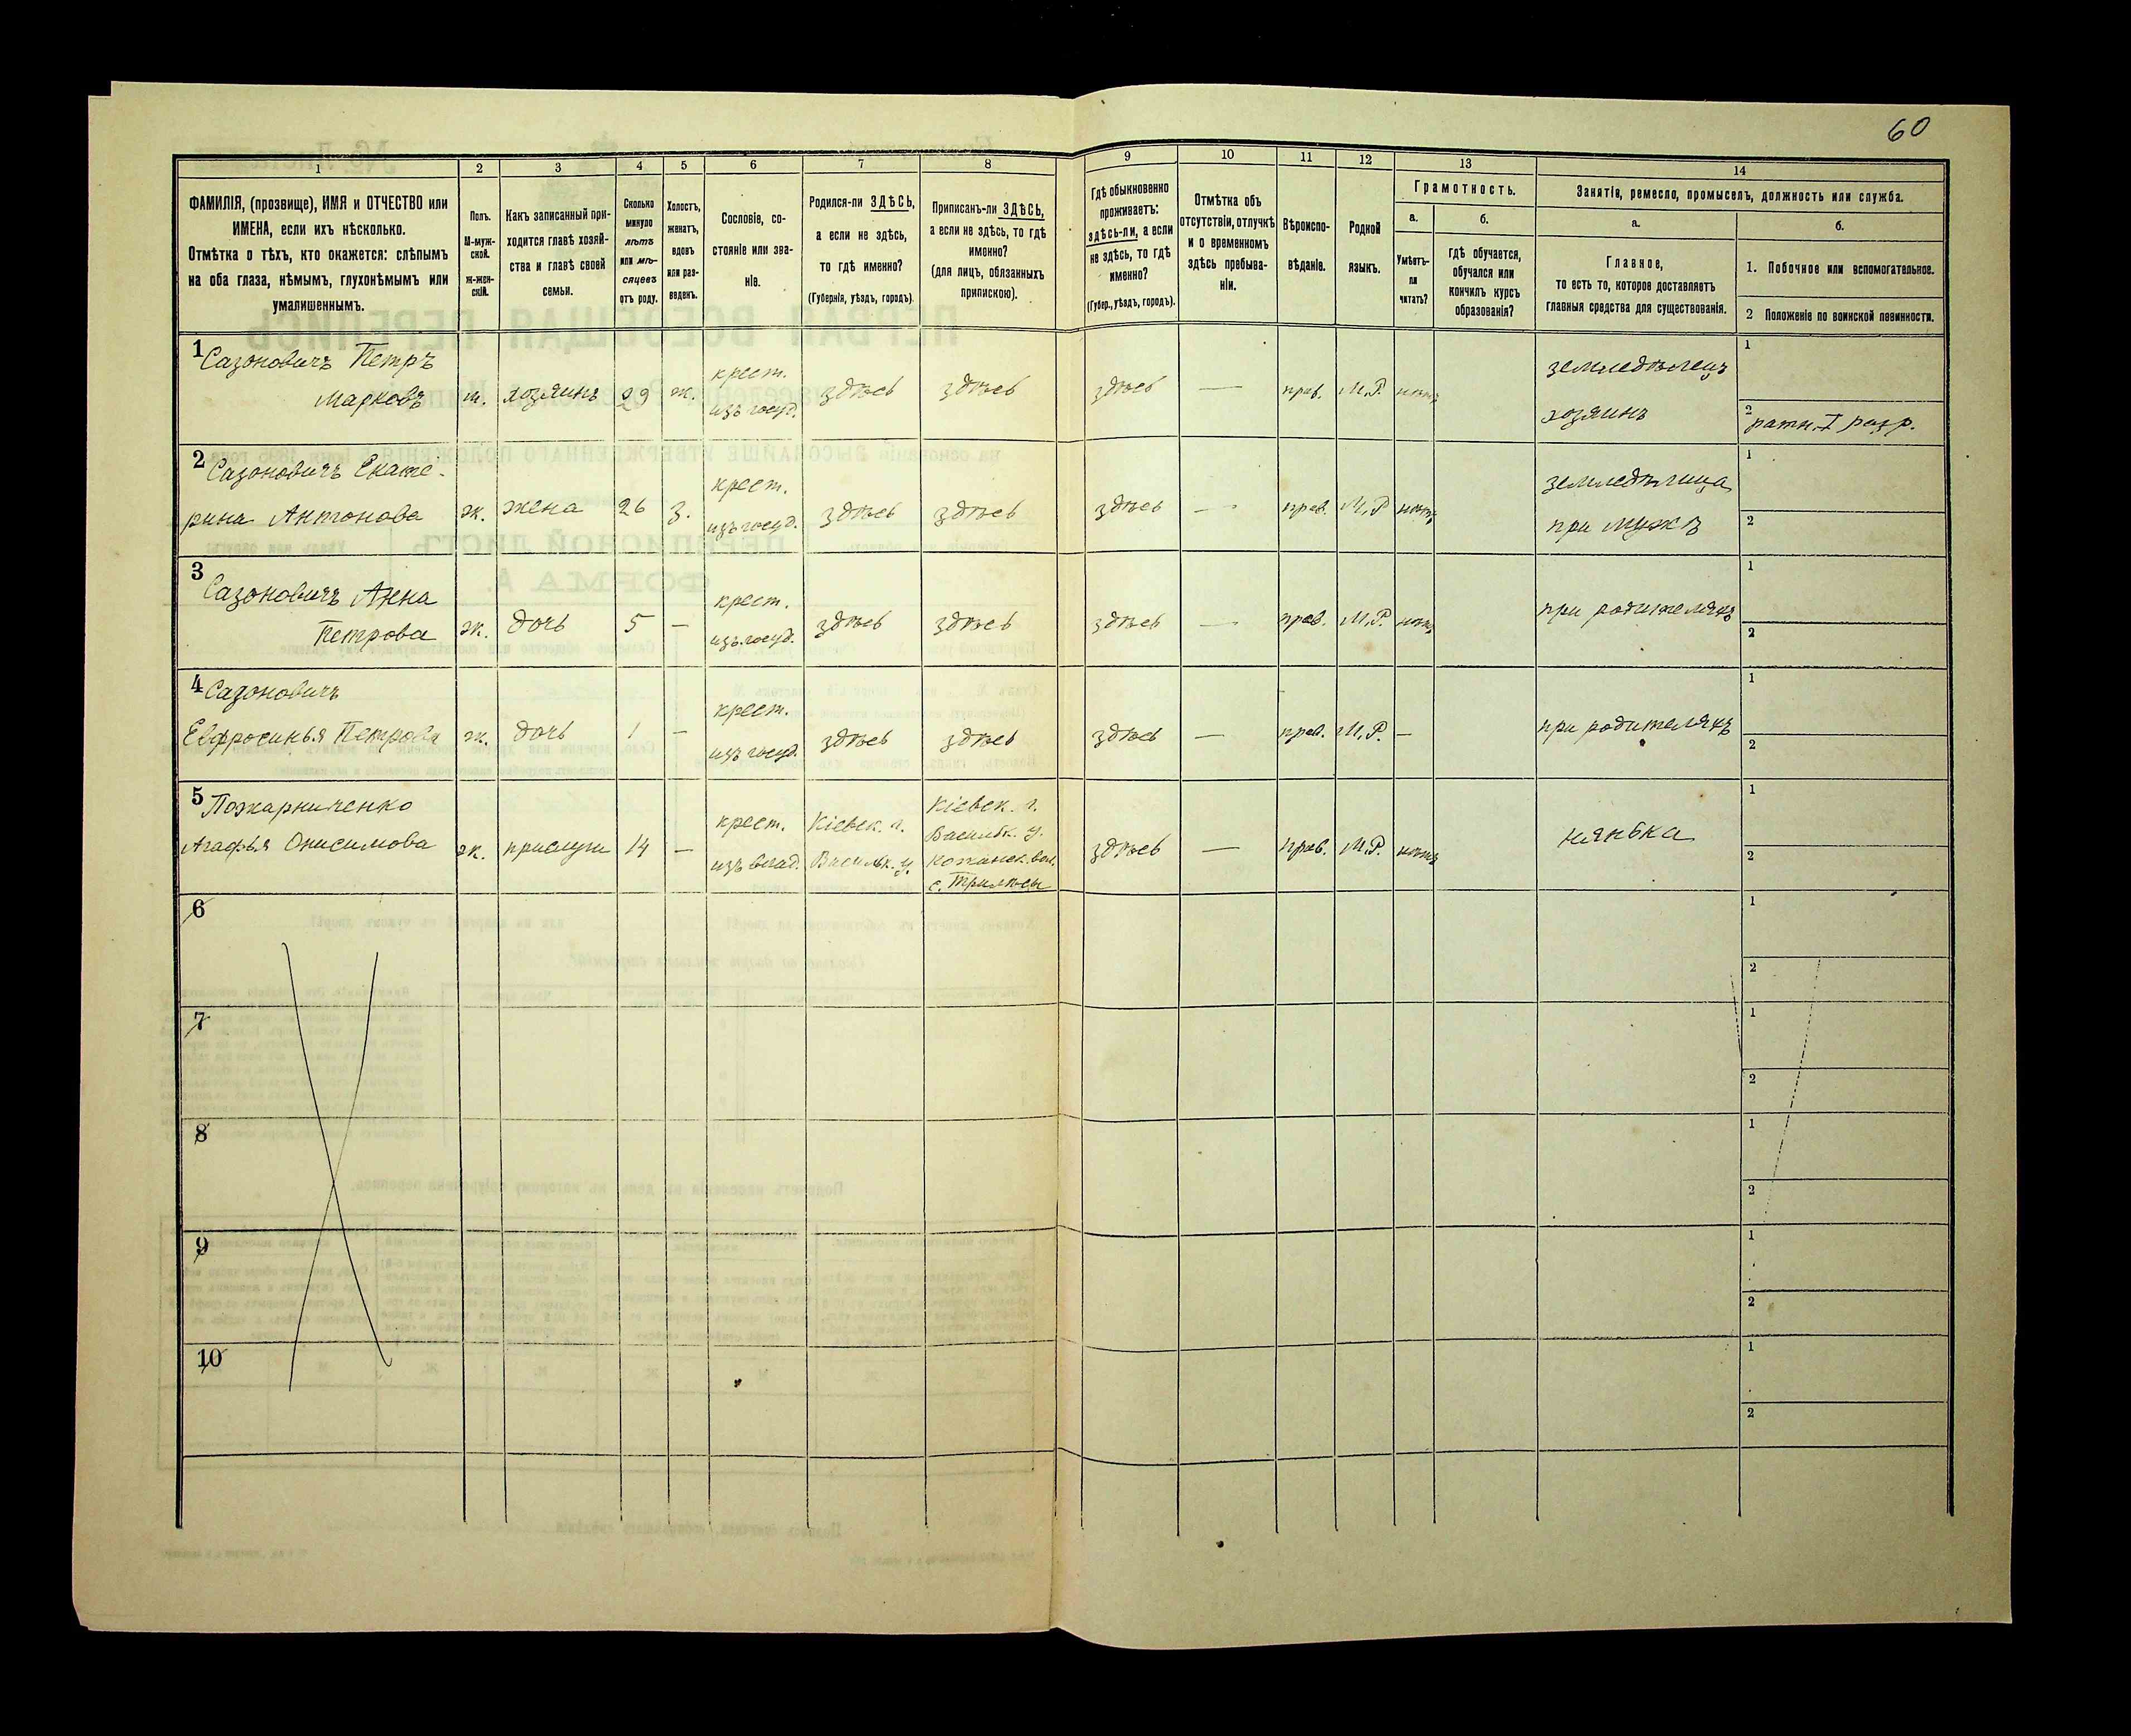 60
1
2
3
4
5
6
7
8
9
10
11
12
13
14
ФАМИЛІЯ, (прозвище), ИМЯ и ОТЧЕСТВО или
ИМЕНА, если ихъ нѣсколько.
Отмѣтка о тѣхъ, кто окажется: слѣпымъ
на оба глаза, нѣмымъ, глухонѣмымъ или
умалишеннымъ.
Полъ.
М-муж-
ской.
ж-жен-
скій.
Какъ записанный при-
ходится главѣ хозяй-
ства и главѣ своей
семьи.
Сколько
минуло
лѣтъ
или мѣ-
сяцевъ
отъ роду.
Холостъ,
женатъ,
вдовъ
или раз-
веденъ.
Сословіе, со-
стояніе или зва-
ніе.
Родился-ли ЗДѢСЬ,
а если не здѣсь,
то гдѣ именно?
(Губернія, уѣздъ, городъ).
Приписанъ-ли ЗДѢСЬ,
а если не здѣсь, то гдѣ
именно?
(для лицъ, обязанныхъ
припискою).
Гдѣ обыкновенно
проживаетъ:
здѣсь-ли, а если
не здѣсь, то гдѣ
именно?
(Губер., уѣздъ, городъ).
Отмѣтка объ
отсутствіи, отлучкѣ
и о временномъ
здѣсь пребыва-
ніи.
Вѣроиспо-
вѣданіе.
Родной
языкъ.
Грамотность.
а.
Умѣетъ-
ли
читать?
б.
Гдѣ обучается,
обучался или
кончилъ курсъ
образованія?
Занятія, ремесло, промыселъ, должность или служба.
а.
Главное,
то есть то, которое доставляетъ
главныя средства для существованія.
б.
1. Побочное или вспомогательное.
2 Положеніе по воинской повинности.
1 Сазоновичъ Петръ
Марковъ м. хозяинъ 29 ж. крест. изъ госуд. здѣсь здѣсь здѣсь — прав. М.Р. нѣтъ
земледѣлецъ
хозяинъ
1
2 ратн. I разр.
2 Сазоновичъ Екате-
рина Антонова ж. жена 26 з. крест. изъ госуд. здѣсь здѣсь здѣсь — прав. М.Р. нѣтъ
земледѣлица
при мужѣ
1
2
3 Сазоновичъ Анна
Петрова ж. дочь 5 — крест. изъ госуд. здѣсь здѣсь здѣсь — прав. М.Р. нѣтъ
при родителяхъ
1
2
4 Сазоновичъ
Евфросинья Петрова ж. дочь 1 — крест. изъ госуд. здѣсь здѣсь здѣсь — прав. М.Р. —
при родителяхъ
1
2
5 Пожарниченко
Агафья Онисимова ж. прислуга 14 — крест. изъ влад.
Кіевск. г.
Васильк. у.
Кіевск. г.
Васильк. у.
Кожанск. вол.
с. Трилѣсы
здѣсь — прав. М.Р. нѣтъ
нянька
1
2
6
1
2
7
1
2
8
1
2
9
1
2
10
1
2